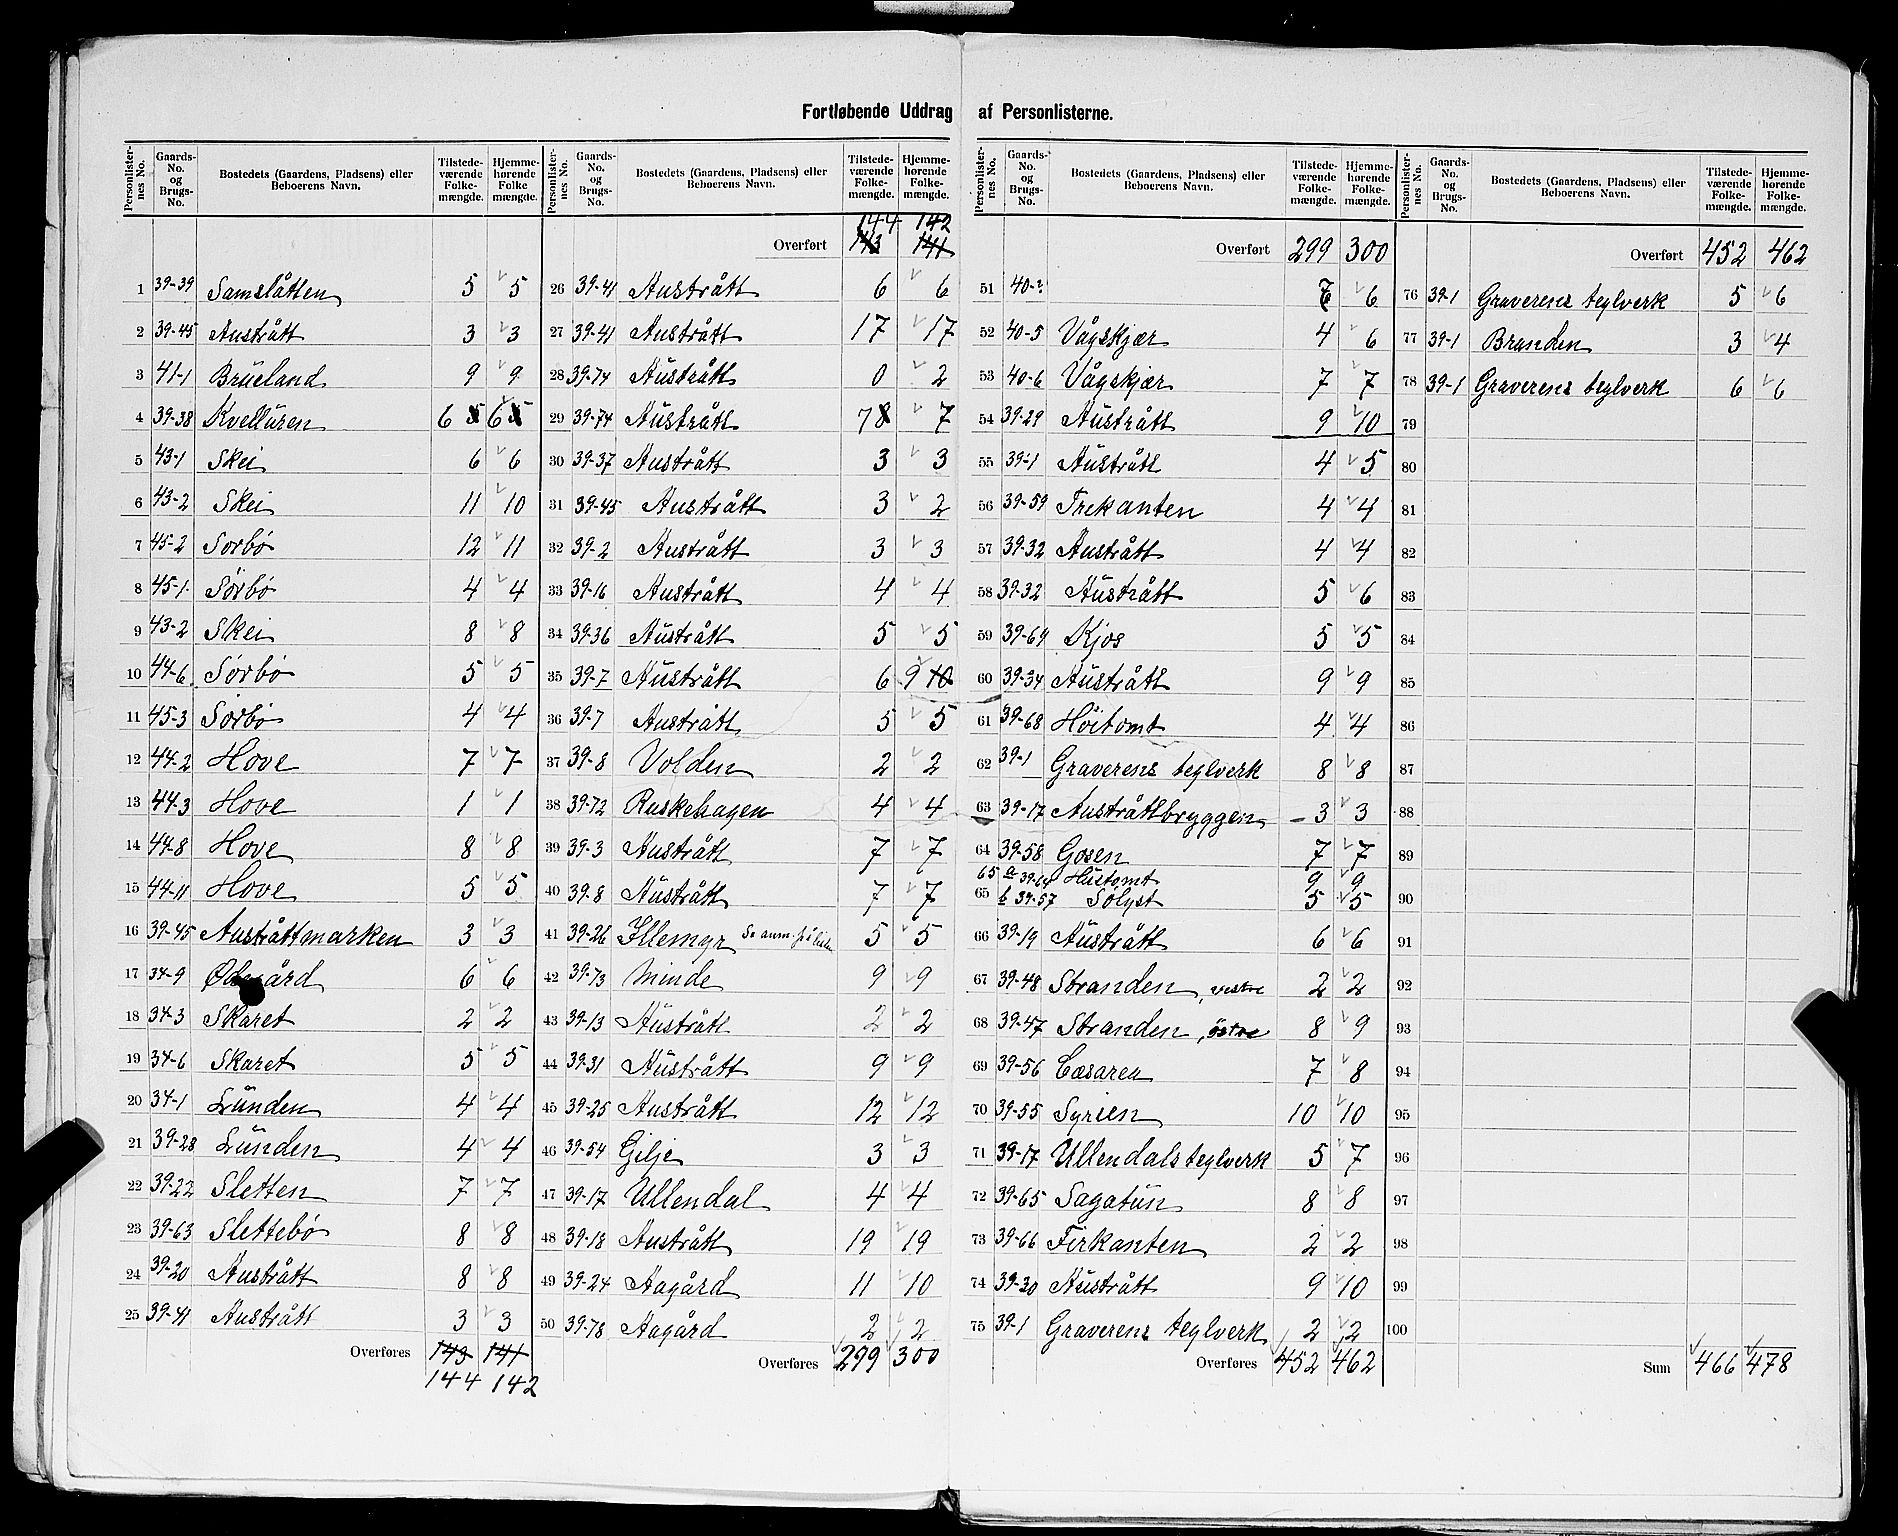 Fortløbende Uddrag af Personlisterne.
Personlisternes No. | Gaards-No. og Brugs-No. | Bostedets (Gaardens, Pladsens) eller Beboerens Navn. | Tilstedeværende Folkemængde. | Hjemmehørende Folkemængde.
1 39-39 Samslåtten 5 5
2 39-45 Austrått 3 3
3 41-1 Brueland 9 9
4 39-38 Kvelluren 6 5 6 5
5 43-1 Skei 6 6
6 43-2 Skei 11 10
7 45-2 Sørbø 12 11
8 45-1 Sørbø 4 4
9 43-2 Skei 8 8
10 44-6 Sørbø 5 5
11 45-3 Sørbø 4 4
12 44-2 Hove 7 7
13 44-3 Hove 1 1
14 44-8 Hove 8 8
15 44-11 Hove 5 5
16 39-45 Austråttmarken 3 3
17 34-9 Ødegård 6 6
18 34-3 Skaret 2 2
19 34-6 Skaret 5 5
20 34-1 Lunden 4 4
21 39-28 Lunden 4 4
22 39-22 Sletten 7 7
23 39-63 Slettebø 8 8
24 39-20 Austrått 8 8
25 39-41 Austrått 3 3
Overføres 143 141
144 142
Personlisternes No. | Gaards-No. og Brugs-No. | Bostedets (Gaardens, Pladsens) eller Beboerens Navn. | Tilstedeværende Folkemængde. | Hjemmehørende Folkemængde.
144 142
Overført 143 141
26 39-41 Austrått 6 6
27 39-41 Austrått 17 17
28 39-74 Austrått 0 2
29 39-74 Austrått 7 8 7
30 39-37 Austrått 3 3
31 39-45 Austrått 3 2
32 39-2 Austrått 3 3
33 39-16 Austrått 4 4
34 39-36 Austrått 5 5
35 39-7 Austrått 6 9 10
36 39-7 Austrått 5 5
37 39-8 Volden 2 2
38 39-72 Ruskehagen 4 4
39 39-3 Austrått 7 7
40 39-8 Austrått 7 7
41 39-26 Illemyr Se anm. på liste 5 5
42 39-73 Minde 9 9
43 39-13 Austrått 2 2
44 39-31 Austrått 9 9
45 39-25 Austrått 12 12
46 39-54 Gilje 3 3
47 39-17 Ullendal 4 4
48 39-18 Austrått 19 19
49 39-24 Aagård 11 10
50 39-78 Aagård 2 2
Overføres 299 300
Personlisternes No. | Gaards-No. og Brugs-No. | Bostedets (Gaardens, Pladsens) eller Beboerens Navn. | Tilstedeværende Folkemængde. | Hjemmehørende Folkemængde.
Overført 299 300
51 40-? 6
52 40-5 Vågskjær 4 6
53 40-6 Vågskjær 7 7
54 39-29 Austrått 9 10
55 39-1 Austrått 4 5
56 39-59 Trekanten 4 4
57 39-32 Austrått 4 4
58 39-32 Austrått 5 6
59 39-69 Kjos 5 5
60 39-34 Austrått 9 9
61 39-68 Høitomt 4 4
62 39-1 Graverens teglverk 8 8
63 39-17 Austråttbryggen 3 3
64 39-58 Gosen 7 7
65 a 39-64 Hustomt 9 9
65 b 39-57 Solyst 5 5
66 39-19 Austrått 6 6
67 39-48 Stranden, vestre 2 2
68 39-47 Stranden, østre 8 9
69 39-56 Cæsarea 7 8
70 39-55 Syrien 10 10
71 39-17 Ullendals teglverk 5 7
72 39-65 Sagatun 8 8
73 39-66 Firkanten 2 2
74 39-30 Austrått 9 10
75 39-1 Graverens teglverk 2 2
Overføres 452 462
Personlisternes No. | Gaards-No. og Brugs-No. | Bostedets (Gaardens, Pladsens) eller Beboerens Navn. | Tilstedeværende Folkemængde. | Hjemmehørende Folkemængde.
Overført 452 462
76 39-1 Graverens teglverk 5 6
77 39-1 Branden 3 4
78 39-1 Graverens teglverk 6 6
79
80
81
82
83
84
85
86
87
88
89
90
91
92
93
94
95
96
97
98
99
100
Sum 466 478